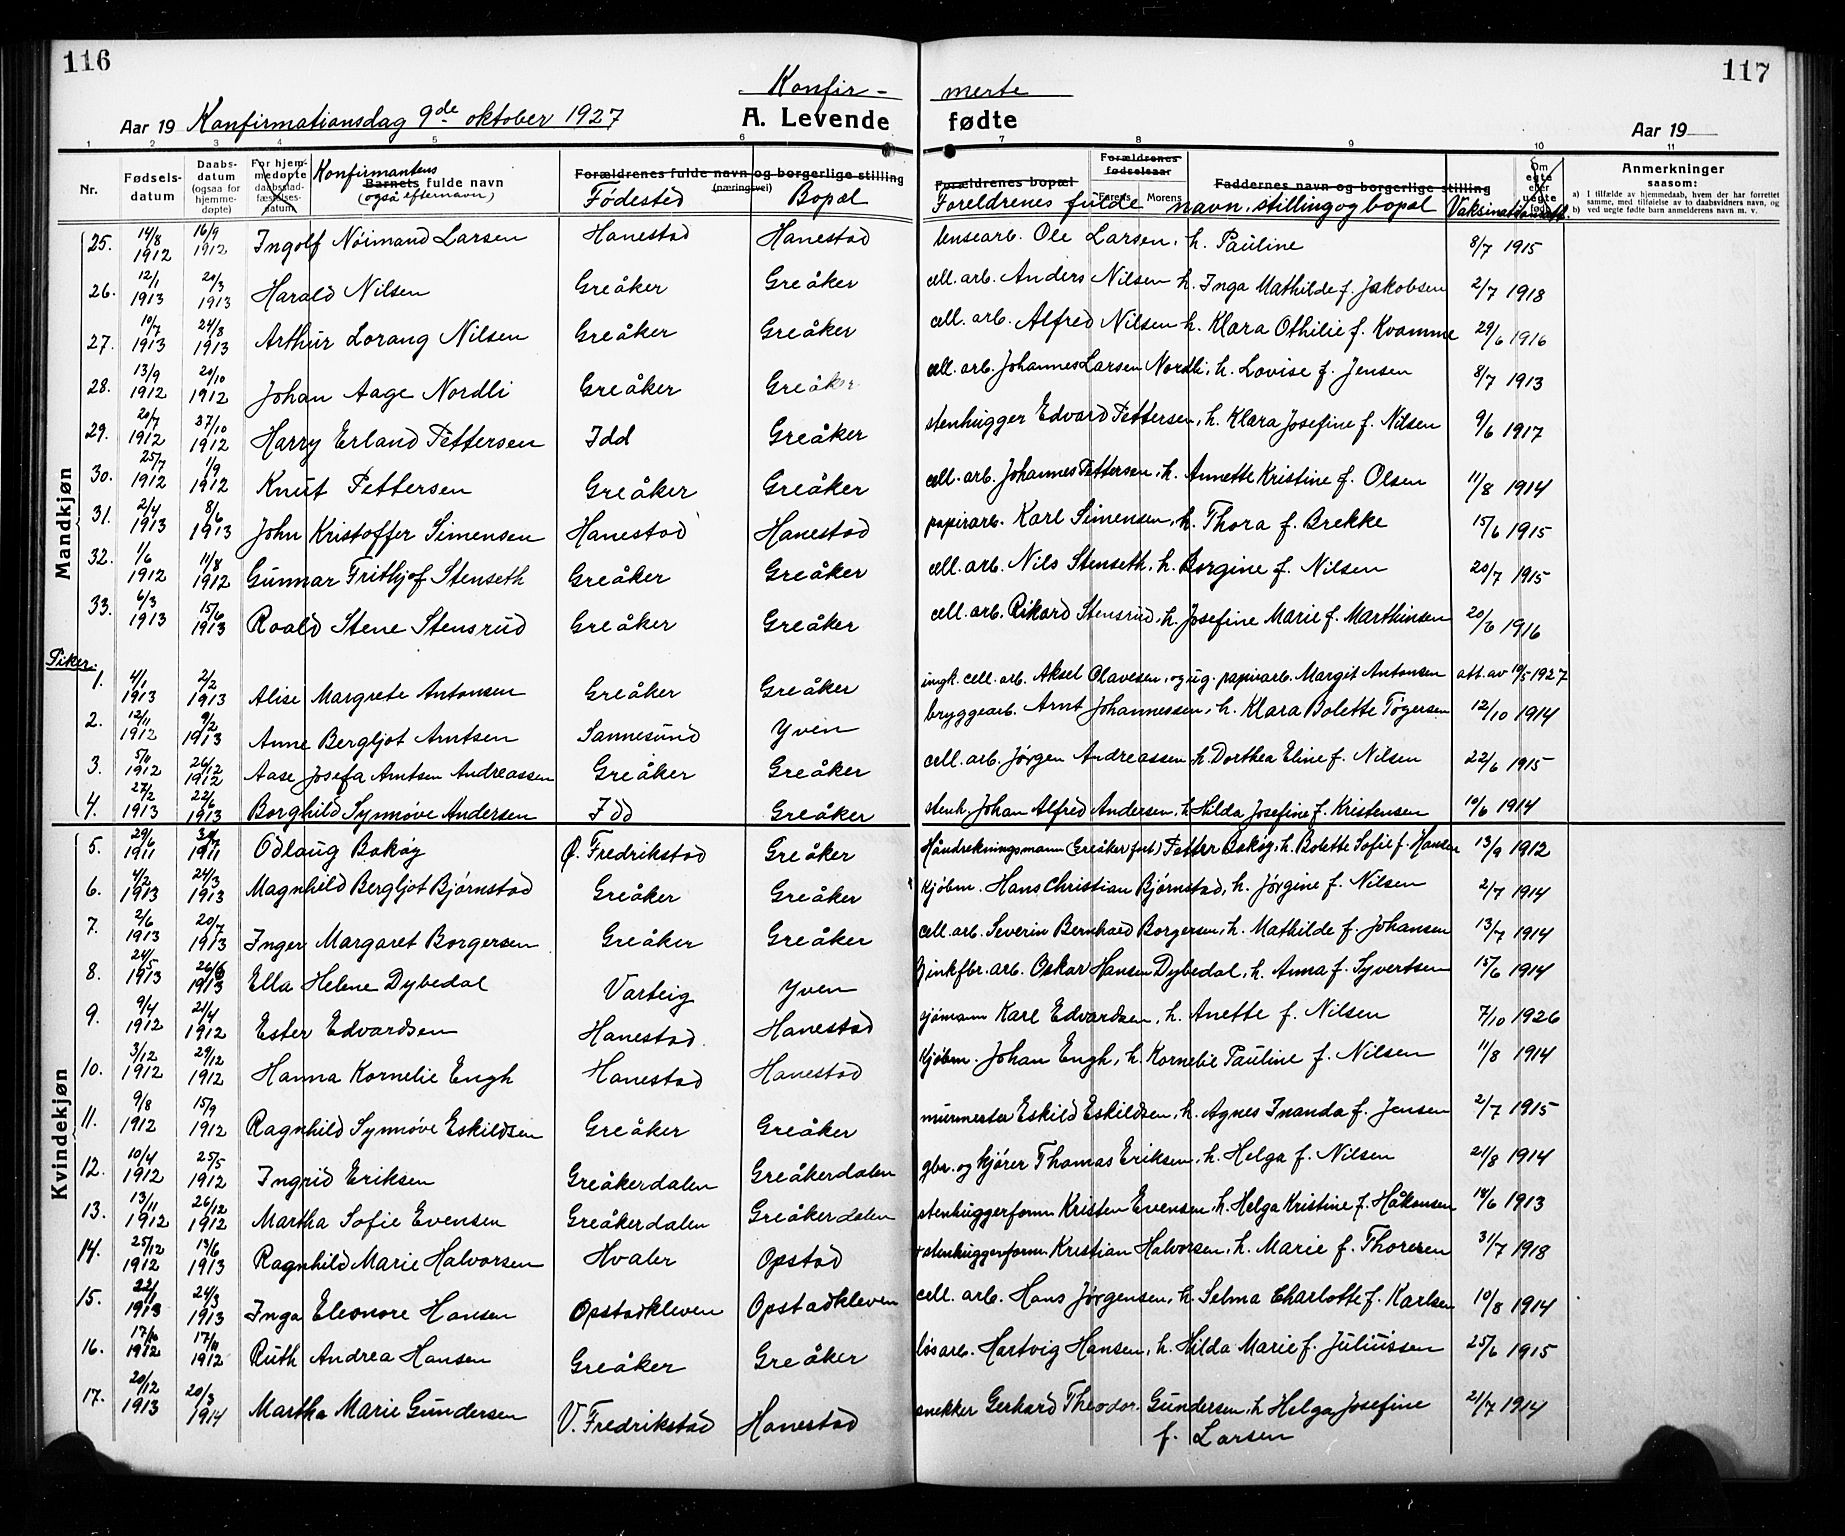 116
117
Konfir- merte
Aar 19 Konfirmationsdag 9de oktober 1927 A. Levende fødte Aar 19
1 2 3 4 5 6 7 8 9 10 11
Nr. Fødsels-datum Daabs-datum (ogsaa for hjemme-døpte) For hjem-medøpte daabsstad-fæstelses-datum Konfirmantens Barnets fulde navn (også efternavn) Forældrenes fulde navn og borgerlige stilling (næringsvei) Fødested Bopæl Forældrenes bopæl Forældrenes fødselsaar Farens Morens Faddernes navn og borgerlige stilling Foreldrenes fulde navn, stilling og bopæl Om egte eller uegte født Vaksinationsatt. Anmerkninger saasom:
a) I tilfælde av hjemmedaab, hvem der har forrettet samme, med tilføielse av to daabsvidners navn, og
b) ved uegte fødte barn anmelderens navn m. v.
Mandkjøn
25. 14/8 1912 16/9 1912 Ingolf Nöimand Larsen Hanestad Hanestad lensearb. Ole Larsen, h. Pauline 8/7 1915
26. 12/1 1913 24/3 1913 Harald Nilsen Greåker Greåker cell. arb. Anders Nilsen h. Inga Mathilde f. Jakobsen 2/7 1918
27. 10/7 1913 24/8 1913 Arthur Lorang Nilsen Greåker Greåker cell. arb. Alfred Nilsen h. Klara Othilie f. Kvamme 29/6 1916
28. 13/9 1912 20/10 1912 Johan Aage Nordli Greåker Greåker cell. arb. Johannes Larsen Nordli, h. Lovise f. Jensen 8/7 1913
29. 20/7 1912 37/10 1912 Harry Erland Pettersen Idd Greåker stenhugger Edvard Pettersen, h. Klara Josefine f. Nilsen 9/6 1917
30. 25/7 1912 1/9 1912 Knut Pettersen Greåker Greåker cell. arb. Johannes Pettersen, h. Annette Kristine f. Olsen 11/8 1914
31. 2/4 1913 8/6 1913 John Kristoffer Simensen Hanestad Hanestad papirarb. Karl Simensen, h. Thora f. Brekke 15/6 1915
32. 1/6 1912 11/8 1912 Gunnar Frithjof Stenseth Greåker Greåker cell. arb. Nils Stenseth, h. Borgine f. Nilsen 20/7 1915
33. 6/3 1913 15/6 1913 Roald Stene Stensrud Greåker Greåker cell. arb. Rikard Stensrud, h. Josefine Marie f. Marthinsen 20/6 1916
Piker.
1. 4/1 1913 2/2 1913 Alise Margrete Antonsen Greåker Greåker ungk. cell. arb. Aksel Olavesen, og ug. papirarb. Margit Antonsen att. av 10/5 1927
2. 12/11 1912 9/2 1913 Anne Bergljot Arntsen Sannesund Yven bryggearb. Arnt Johannessen, h. Klara Bolette Tøgersen 12/10 1914
3. 5/10 1912 26/12 1912 Aase Josefa Arntsen Andreassen Greåker Greåker cell. arb. Jørgen Andreassen h. Dorthea Eline f. Nilsen 22/6 1915
4. 27/2 1913 22/6 1913 Borghild Synnøve Andersen Idd Greåker stenh. Johan Alfred Andersen, h. Hilda Josefine f. Kristensen 10/6 1914
Kvindekjøn
5. 29/6 1911 1911 Odlaug Bakøy Ø. Fredrikstad Greåker Håndrekningsmann (Greåker fort) Petter Bakøy, h. Bolette Sofie f. Hansen 13/9 1912
6. 4/2 1913 24/3 1913 Magnhild Bergljot Bjørnstad Greåker Greåker kjøbm. Hans Christian Bjørnstad, h. Jørgine f. Nilsen 2/7 1914
7. 2/6 1913 20/7 1913 Inger Margaret Borgersen Greåker Greåker cell. arb. Severin Bernhard Borgersen, h. Mathilde f. Johansen 13/7 1914
8. 24/5 1913 1913 Ella Helene Dybedal Varteig Yven Zinkfbr. arb. Oskar Hansen Dybedal, h. Anna f. Syvertsen 15/6 1914
9. 9/4 1912 21/4 1912 Ester Edvardsen Hanestad. Hanestad sjømann Karl Edvardsen, h. Anette f. Nilsen 7/10 1926
10. 3/12 1912 29/12 1912 Hanna Kornelie Engh Hanestad Hanestad kjøbm. Johan Engh, h. Kornelie Pauline f. Nilsen 11/8 1914
11. 9/8 1912 15/9 1912 Ragnhild Synnøve Eskildsen Greåker Greåker murmester Eskild Eskildsen, h. Agnes Inanda f. Jensen 2/7 1915
12. 10/4 1912 25/5 1912 Ingrid Eriksen Greåkerdalen Greåkerdalen gbr. og kjører Thomas Eriksen, h. Helga f. Nilsen 21/8 1914
13. 13/11 1912 26/12 1912 Martha Sofie Evensen Greåkerdalen Greåkerdalen stenhuggerform. Kristen Evensen, h. Helga Kristine f. Håkonsen 18/6 1913
14. 25/12 1912 13/6 1913 Ragnhild Marie Halvorsen Hvaler Opstad stenhuggerform. Kristian Halvorsen, h. Marie f. Thoresen 31/7 1918
15. 22/1 1913 24/3 1913 Inga Eleonore Hansen Opstadkleven Opstadkleven cell. arb. Hans Jørgensen, h. Selma Charlotte f. Karlsen 10/8 1914
16. 1912 1912 Ruth Andrea Hansen Greåker Greåker løsarb. Hartvig Hansen, h. Hilda Marie f. Juliussen 25/6 1915
17. 20/12 1913 20/3 1914 Martha Marie Gundersen V. Fredrikstad Hanestad snekker Gerhard Theodor. Gundersen, h Helga Josefine 21/7 1914
f. Larsen